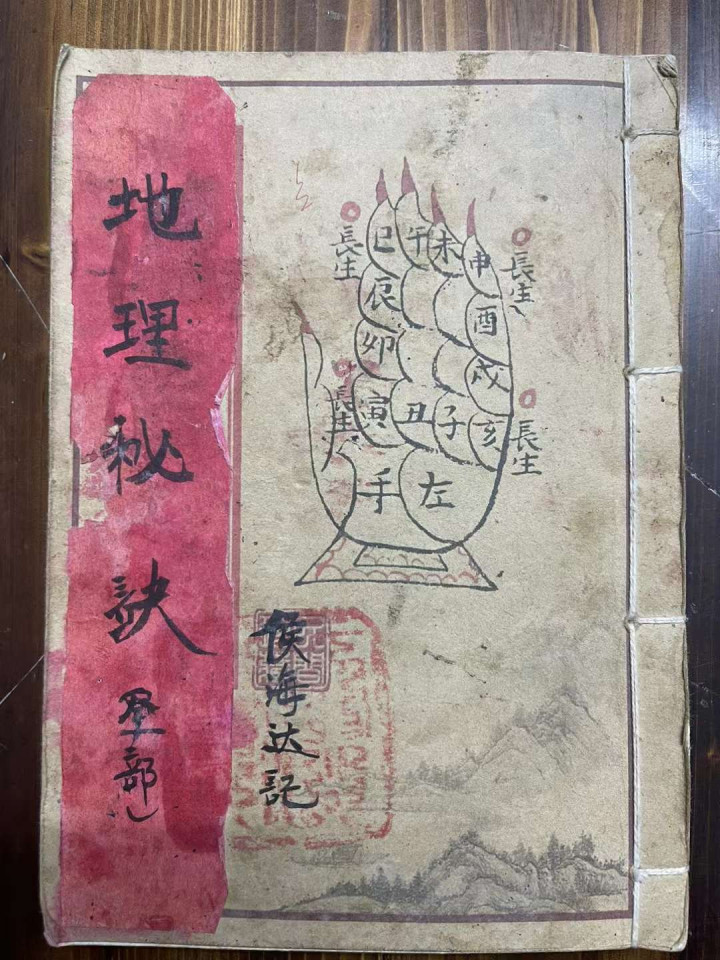 地理秘訣
部
長生
巳
午
未
申
長生
辰
酉
卯
戌
長生
寅
丑
子
亥
長生
手
左
侯海达記